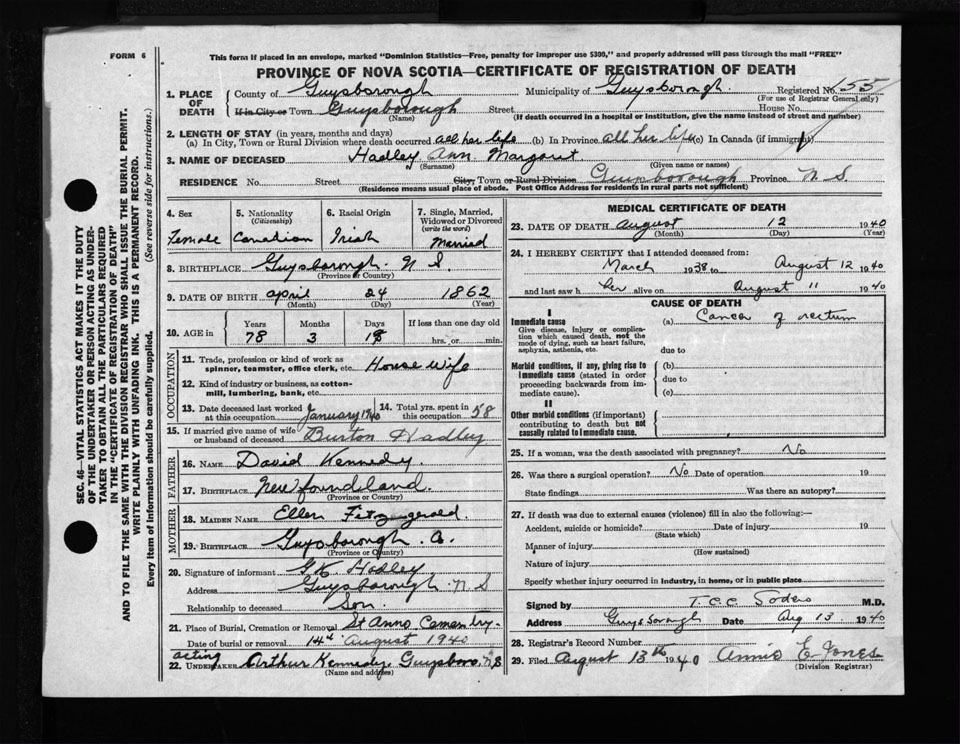 FORM 6
This form if placed in an envelope, marked "Dominion Statistics—Free, penalty for improper use $300," and properly addressed will pass through the mail "FREE"
PROVINCE OF NOVA SCOTIA—CERTIFICATE OF REGISTRATION OF DEATH
1. PLACE OF DEATH County of Guysborough Municipality of Guysborough. Registered No. 155
(For use of Registrar General only)
If in City or Town Guysborough Street House No.
(Name) (If death occurred in a hospital or institution, give the name instead of street and number)
2. LENGTH OF STAY (in years, months and days)
(a) In City, Town or Rural Division where death occurred all her life (b) In Province all her life (c) In Canada (if immigrant)
3. NAME OF DECEASED Hadley Ann Margaret
(Surname) (Given name or names)
RESIDENCE No. Street City, Town or Rural Division Guysborough Province N S
(Residence means usual place of abode. Post Office Address for residents in rural parts not sufficient)
4. Sex Female
5. Nationality (Citizenship) Canadian
6. Racial Origin Irish
7. Single, Married, Widowed or Divorced (write the word) Married
8. BIRTHPLACE Guysborough N S.
(Province or Country)
9. DATE OF BIRTH April 24 1862
(Month) (Day) (Year)
10. AGE in Years 78 Months 3 Days 18 If less than one day old hrs. or min.
OCCUPATION
11. Trade, profession or kind of work as spinner, teamster, office clerk, etc. House wife
12. Kind of industry or business, as cotton-mill, lumbering, bank, etc.
13. Date deceased last worked at this occupation January 1940
14. Total yrs. spent in this occupation 58
15. If married give name of wife or husband of deceased Burton Hadley
FATHER
16. NAME David Kennedy.
17. BIRTHPLACE Newfoundland.
(Province or Country)
MOTHER
18. MAIDEN NAME Ellen Fitzgerald.
19. BIRTHPLACE Guysborough. Co.
(Province or Country)
20. Signature of informant Hadley
Address Guysborough N S
Relationship to deceased Son.
21. Place of Burial, Cremation or Removal St Anns Cementry.
Date of burial or removal 14th August 1940
acting
22. UNDERTAKER Arthur Kennedy, Guysboro. NS
(Name and address)
MEDICAL CERTIFICATE OF DEATH
23. DATE OF DEATH August 12 1940
(Month) (Day) (Year)
24. I HEREBY CERTIFY that I attended deceased from:
March 1938 to August 12 1940
and last saw her alive on August 11 1940
CAUSE OF DEATH
I
Immediate cause (a) Cancer of rectum
Give disease, injury or complication which caused death, not the mode of dying, such as heart failure, asphyxia, asthenia, etc.
due to
Morbid conditions, if any, giving rise to immediate cause (stated in order proceeding backwards from immediate cause).
(b)
due to
(c)
II
Other morbid conditions (if important) contributing to death but not causally related to immediate cause.
25. If a woman, was the death associated with pregnancy? No
26. Was there a surgical operation? No Date of operation 19
State findings Was there an autopsy?
27. If death was due to external causes (violence) fill in also the following:—
Accident, suicide or homicide? Date of injury 19
(State which)
Manner of injury
(How sustained)
Nature of injury
Specify whether injury occurred in industry, in home, or in public place
Signed by M.D.
Address Guysborough Date Aug 13. 1940
28. Registrar's Record Number
29. Filed August 13th 1940 Annie E Jones
(Division Registrar)
SEC. 46—VITAL STATISTICS ACT MAKES IT THE DUTY
OF THE UNDERTAKER OR PERSON ACTING AS UNDER-
TAKER TO OBTAIN ALL THE PARTICULARS REQUIRED
IN THE "CERTIFICATE OF REGISTRATION OF DEATH"
AND TO FILE THE SAME WITH THE DIVISION REGISTRAR WHO SHALL ISSUE THE BURIAL PERMIT.
WRITE PLAINLY WITH UNFADING INK. THIS IS A PERMANENT RECORD.
Every item of information should be carefully supplied. (See reverse side for instructions.)